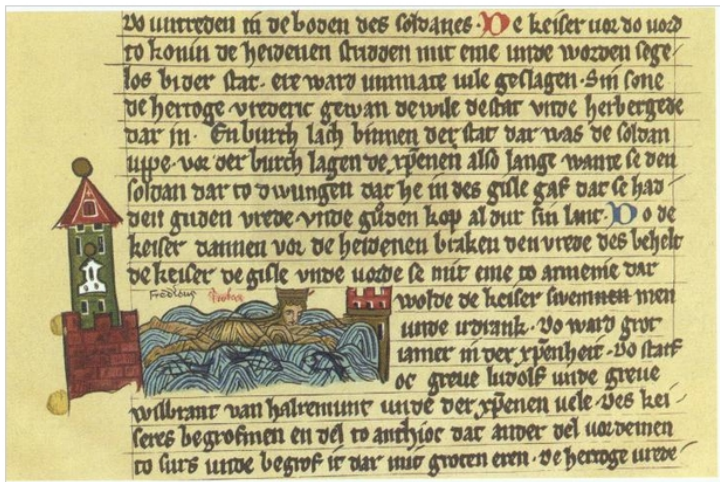 vo untreden in de boden des soldanes · De keiser vor do vord
to konin de heidenen stridden mit eme unde worden sege
los bi der stat · ere ward ummate vile geslagen · Sin sone
de hertoge vrederic gewan de wile de stat unde herbergede
dar in · En burch lach binnen der stat dar was de soldan
uppe · vor der burch lagen de xpenen also lange wante se den
soldan dar to dwungen dat he in des gisle gaf dat se had
den guden vrede vnde guden kop al dur sin lant · Do de
keiser dannen vor de heidenen braken den vrede des behelt
de keiser de gisle vnde vorde se mit eme to armenie dar
wolde de keiser swemmen
unde irdrank · Do ward grot
iamer in der xpenheit · Do starf
oc greve ludolf unde greve
wilbrant van halremunt unde der xpenen vele · Des kei
seres begrofmen en del to anthioc dat ander del vor
to surs unde begrof it dar mit groten eren · De hertoge vrede